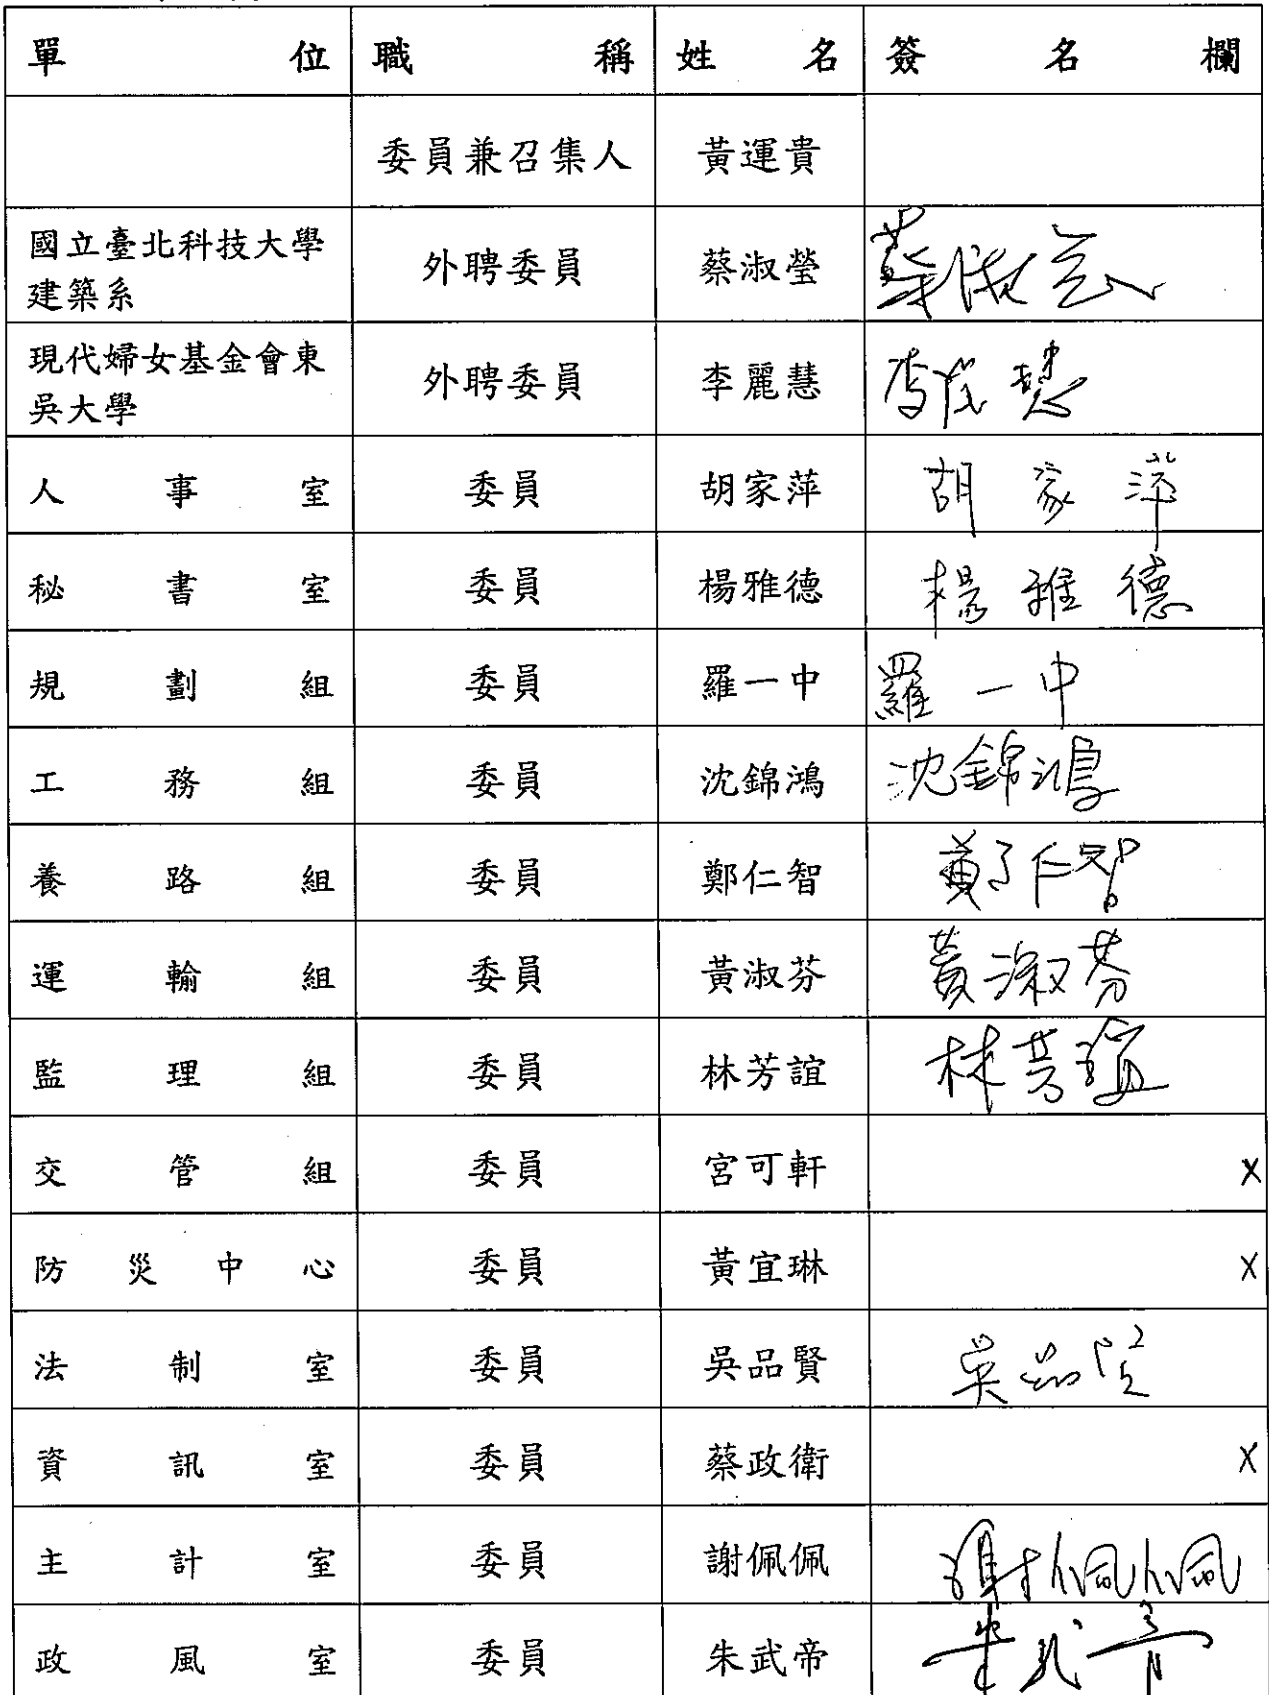 單位 職稱 姓名 簽名欄
委員兼召集人 黃運貴
國立臺北科技大學
建築系 外聘委員 蔡淑瑩 蔡淑瑩
現代婦女基金會東
吳大學 外聘委員 李麗慧 李麗慧
人事室 委員 胡家萍 胡家萍
秘書室 委員 楊雅德 楊雅德
規劃組 委員 羅一中 羅一中
工務組 委員 沈錦鴻 沈錦鴻
養路組 委員 鄭仁智 鄭仁智
運輸組 委員 黃淑芬 黃淑芬
監理組 委員 林芳誼 林芳誼
交管組 委員 宮可軒 X
防災中心 委員 黃宜琳 X
法制室 委員 吳品賢 吳品賢
資訊室 委員 蔡政衛 X
主計室 委員 謝佩佩 謝佩佩
政風室 委員 朱武帝 朱武帝